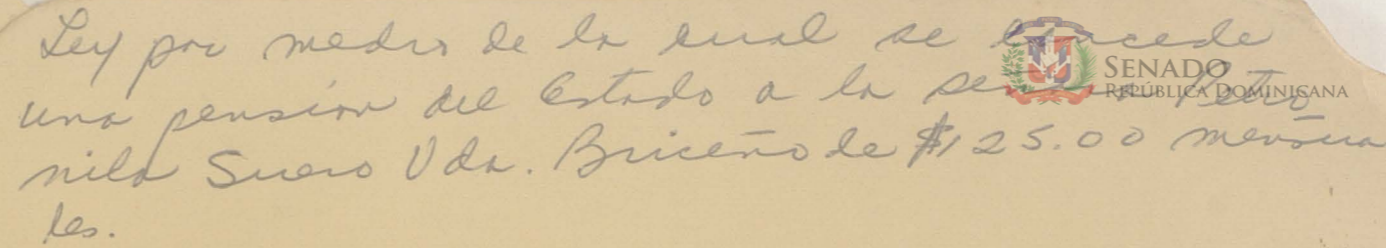 Ley por medio de la cual se concede
una pension del Estado a la señora Petro
nila Suero Vda. Briceño de $125.00 mensua
les.
SENADO
REPÚBLICA DOMINICANA